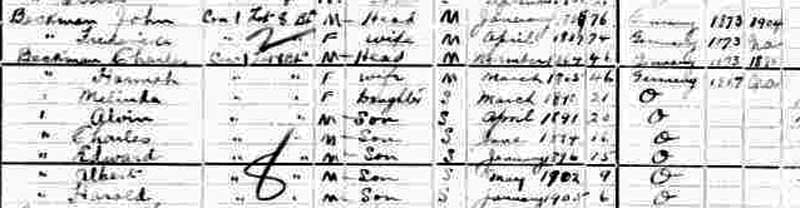 Beckman John Con 1 Lot 8 M Head M January 76 Germany 1873 1904
" Frederica " F wife M April 74 Germany 1873
Beckman Charles M Head M 46 Germany 1873
" Hannah " " F wife M March 1865 46 Germany
" Melinda " " F Daughter S March 1890 21 O
" Alvin " " M Son S April 1891 20 O
" Charles " " M Son S June 16 O
" Edward " " M Son S January 1896 15 O
" Albert " 8 " M Son S May 1902 9 O
" Harold " " M Son S January 1905 6 O